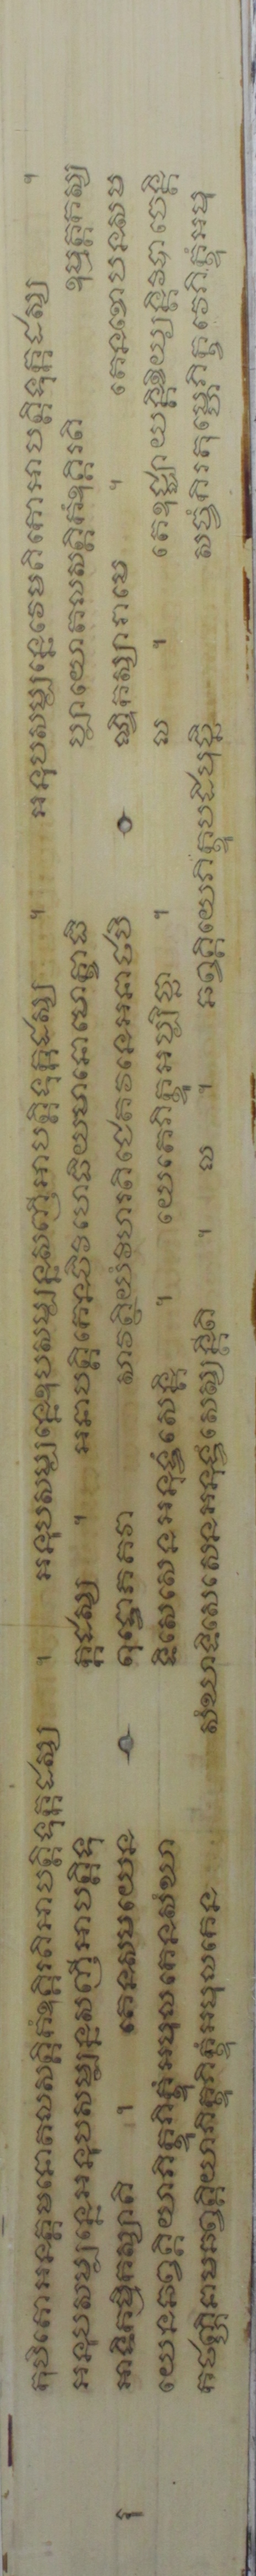 កុបិតោអនត្តមនោតលសត្តិកំឧគ្គិរតិអាបត្តិទុក្កដស្ស ។ អនុបសម្បន្នេឧបសម្បន្នសញ្ញីអាបត្តិទុក្កដស្ស ។ អនុបសម្បន្នេវេមតិកោអាបត្តិទុក្កដស្ស ។
អនុបសម្បន្នេអនុបសម្បន្នសញ្ញីអាបត្តិទុ ក្កដស្ស ។ អនាបត្តិកេនចិវិហេឋិយមានោមោក្ខាធិ ប្បាយោតលសត្តិកំឧគ្គិរតិ ឧម្មត្តកស្ស
អាទិកម្មិកស្សាតិ ។ តេនសមយេន ពុទ្ធោភគវា សាវត្ថិយំវិហរតិជេតវនេអនាថបិ ណ្ឌិកស្សារាមេ ។ តេនខោបនសម
យេនឆព្វគ្គិយាភិក្ខូភិក្ខុំអមូលកេនសំឃា ទិសេសេនអនុទ្ធំសេន្តិ ។ យេតេភិក្ខូអប្បិច្ឆា ។ ល ។ តេឧជ្ឈាយន្តិខិយ្យន្តិវិបាចេន្តិ
កថញ្ហិនាមឆព្វគ្គិយាភិក្ខូភិក្ខុំអមូលកេន សំឃាទិសេសេនអនុទ្ធំសេស្សន្តីតិ ។ ល ។ ឆព្វគ្គិយេភិក្ខូបដិបុច្ឆិ សច្ចំកិរតុម្ហេភិក្ខវេភិក្ខុំអមូ